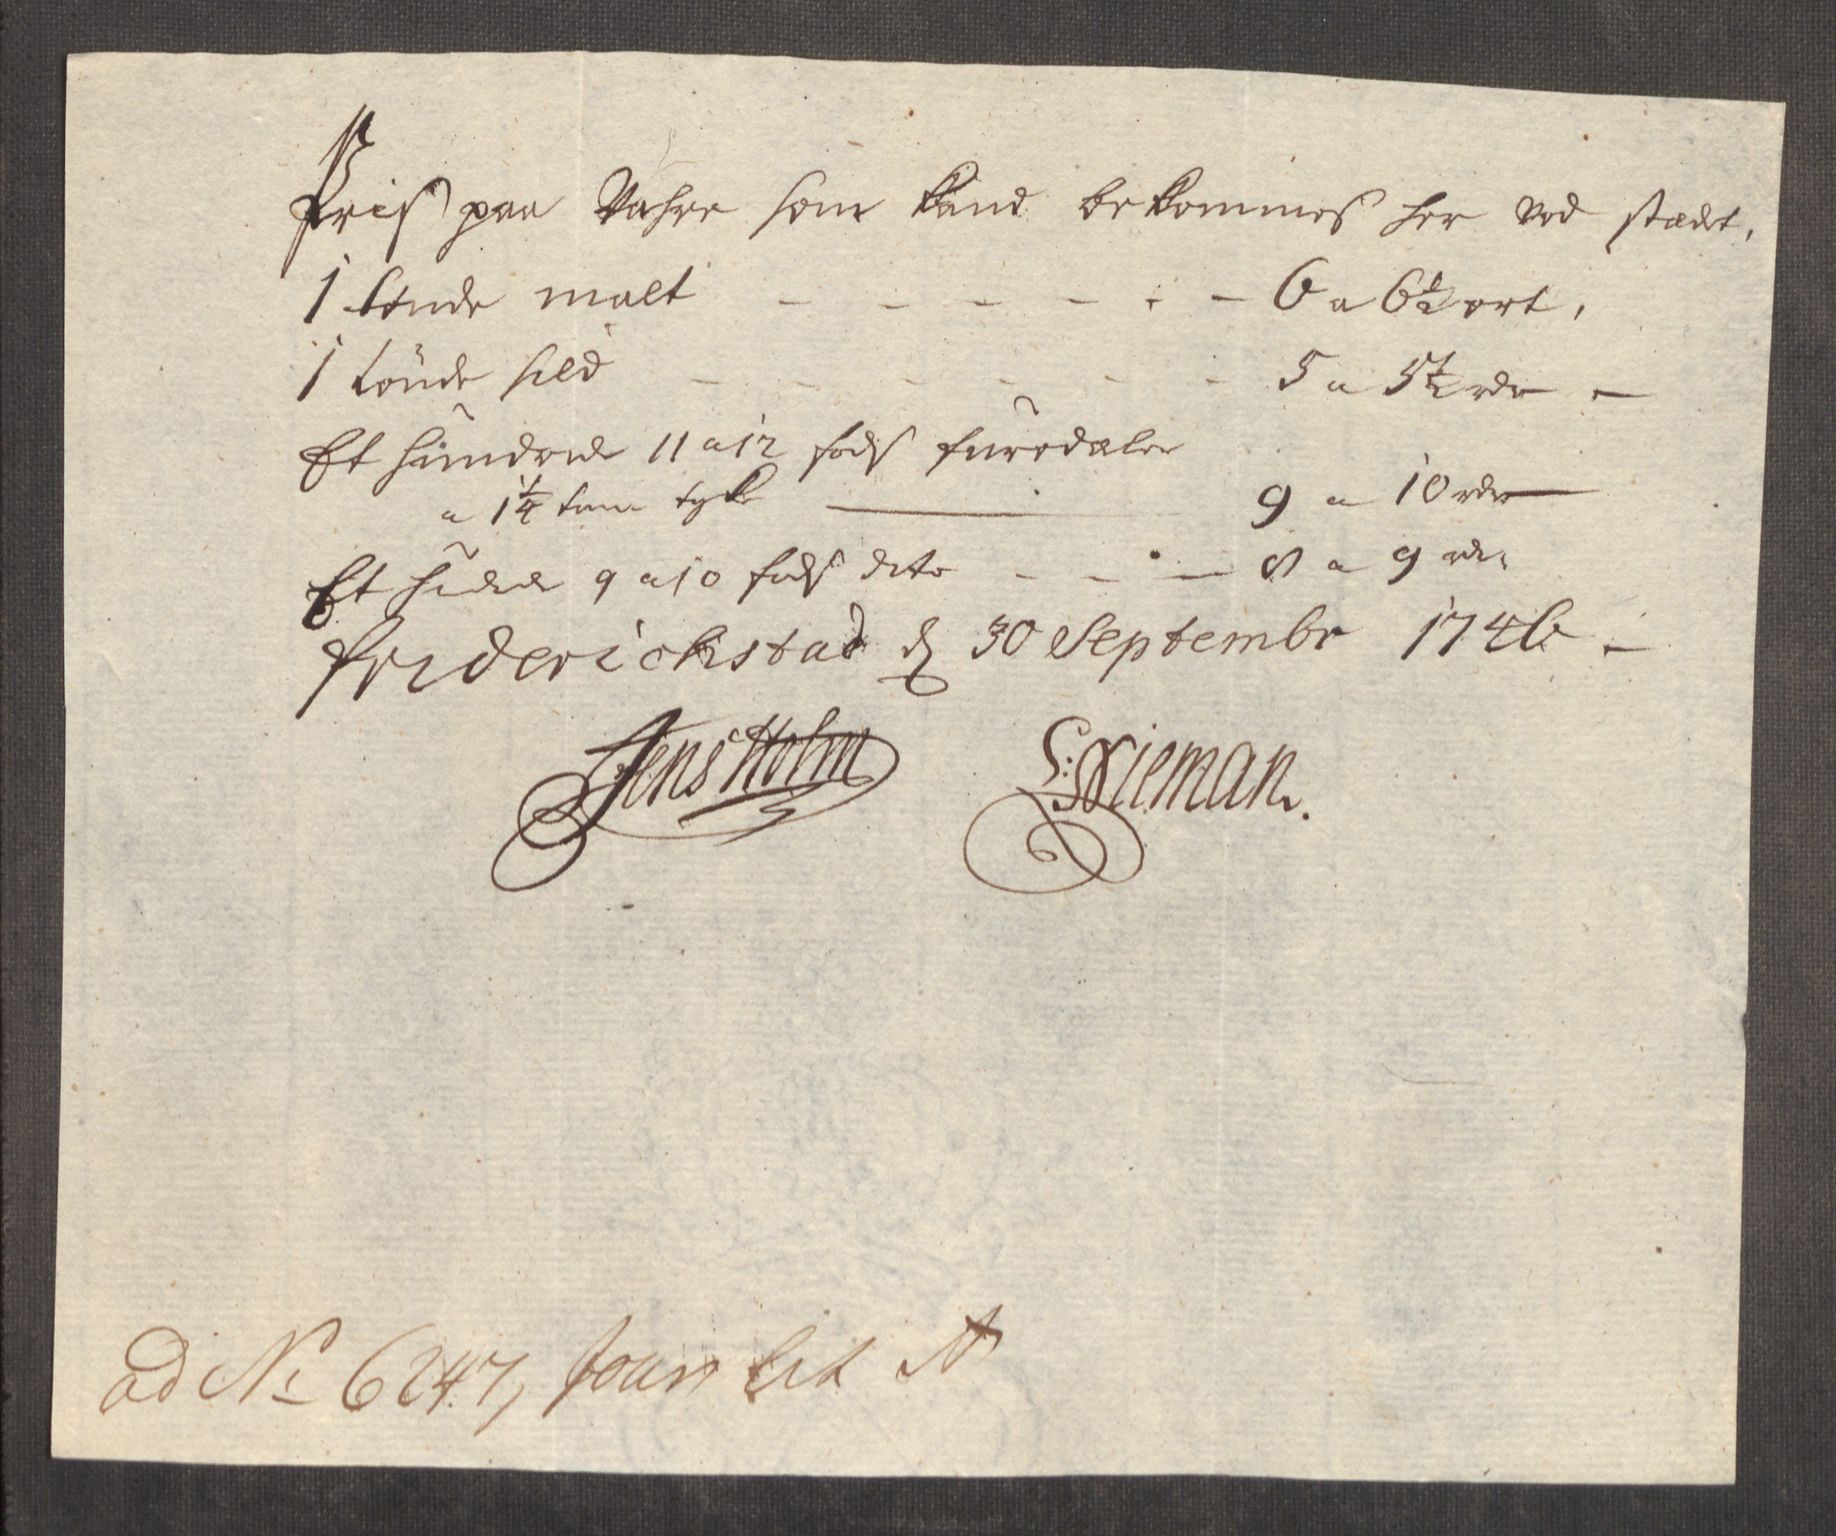 Priß paa Vahre som kand bekommes her ved stædet,
1 tønde malt - - - - - - 6 a 6½ ort,
1 tönde sild - - - - - - 5 a 5½ rdr -
Et hundrede 11 a 12 fods furedæler
a 1¼ tom tyk — 9 a 10 rdr
Et hundrede 9 a 10 fods dito - - - 8 a 9 rdr
friderichstad d 30 Septembr 1746 -
Jens Holm S: Sieman.
ad No 6247, Jour Lit A